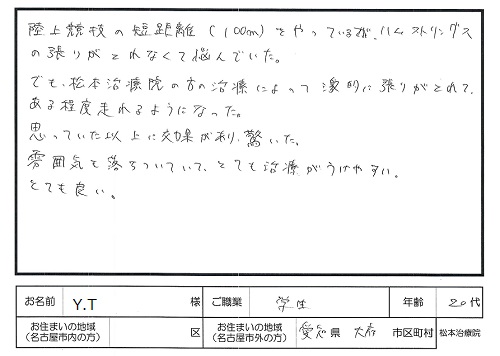 陸上競技の短距離(100m)をやっているが、ハムストリングス
の張りがとれなくて悩んでいた。
でも、松本治療院の方の治療によって劇的に張りがとれて、
ある程度走れるようになった。
思っていた以上に効果があり、驚いた。
雰囲気も落ちついていて、とても治療がうけやすい。
とても良い。
お名前 Y.T 様 ご職業 学生 年齢 20代
お住まいの地域(名古屋市内の方) 区 お住まいの地域(名古屋市外の方) 愛知県 大府 市区町村 松本治療院